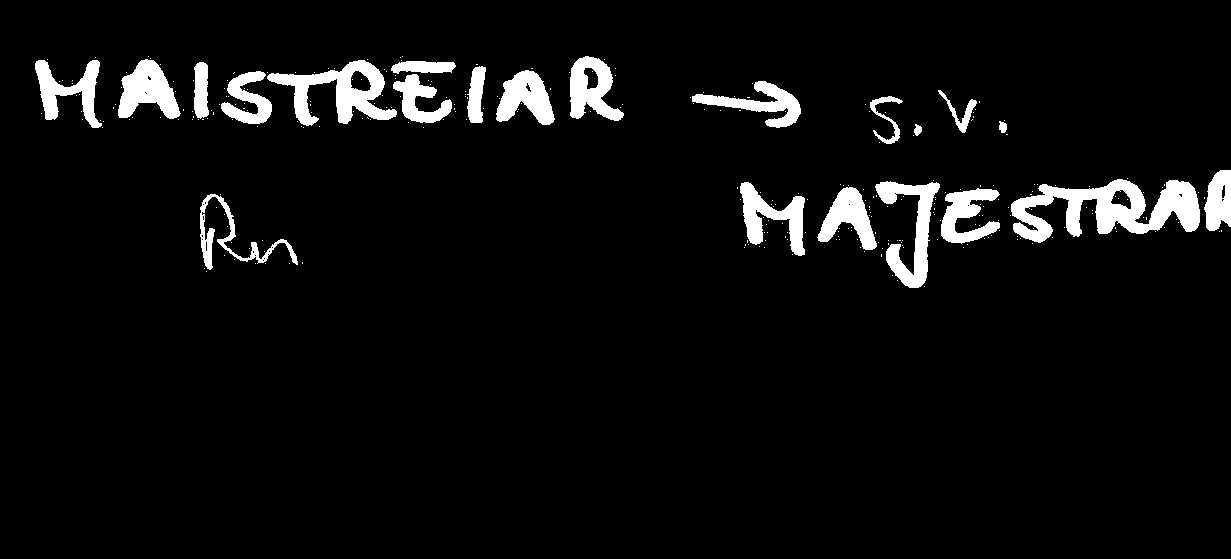 MAISTREIAR → s.v.
MAJESTRAR
Rn